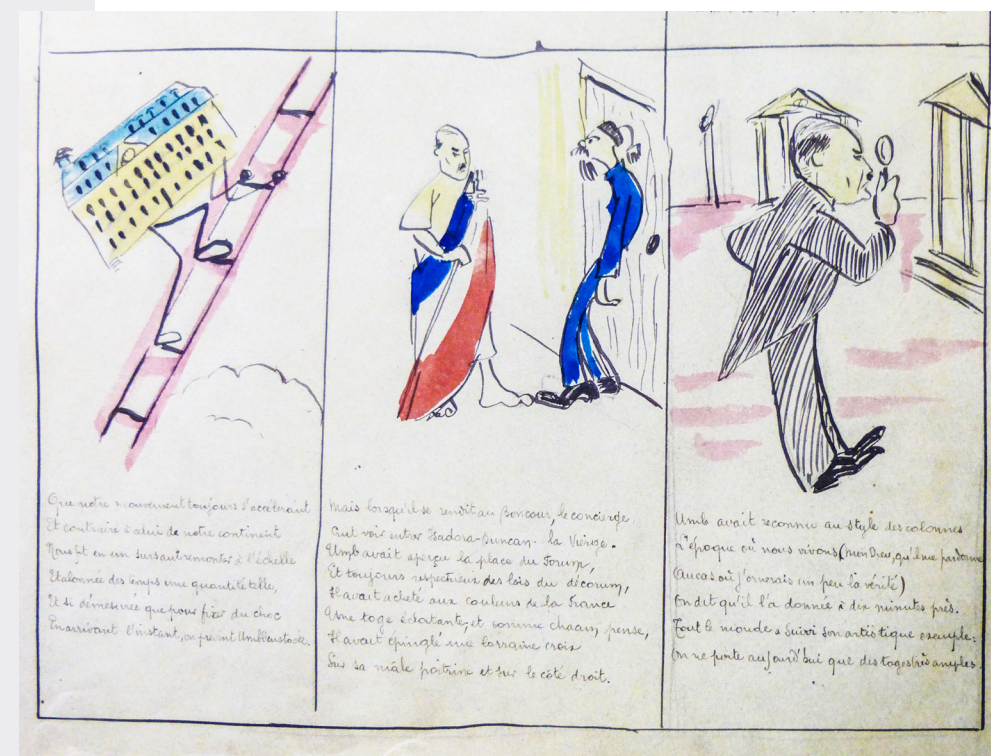 Que notre mouvement toujours s'accélérant
Et contraire à celui de notre continent
Nous fit en un sursaut remonter à l'échelle
Etalonnée des temps une quantité telle,
Et si démesurée que pour fixer du choc
En arrivant l'instant, on prévint Umbdenstock.
Mais lorsqu'il se rendit au Boncour, le concierge
Crut voir entrer Isadora-Duncan-la Vierge.
Umb avait aperçu la place du Forum,
Et toujours respectueux des lois du décorum,
Il avait acheté aux couleurs de la France
Une toge éclatante, et comme chacun pense,
Il avait épinglé une lorraine croix
Sur sa mâle poitrine et sur le côté droit.
Umb avait reconnu au style des colonnes
L'époque où nous vivons (mon Dieu, qu'il me pardonne
(Au cas où j'ornerais un peu la vérité)
On dit qu'il l'a donnée à dix minutes près.
Tout le monde a suivi son artistique exemple:
On ne porte aujourd'hui que des toges très amples.